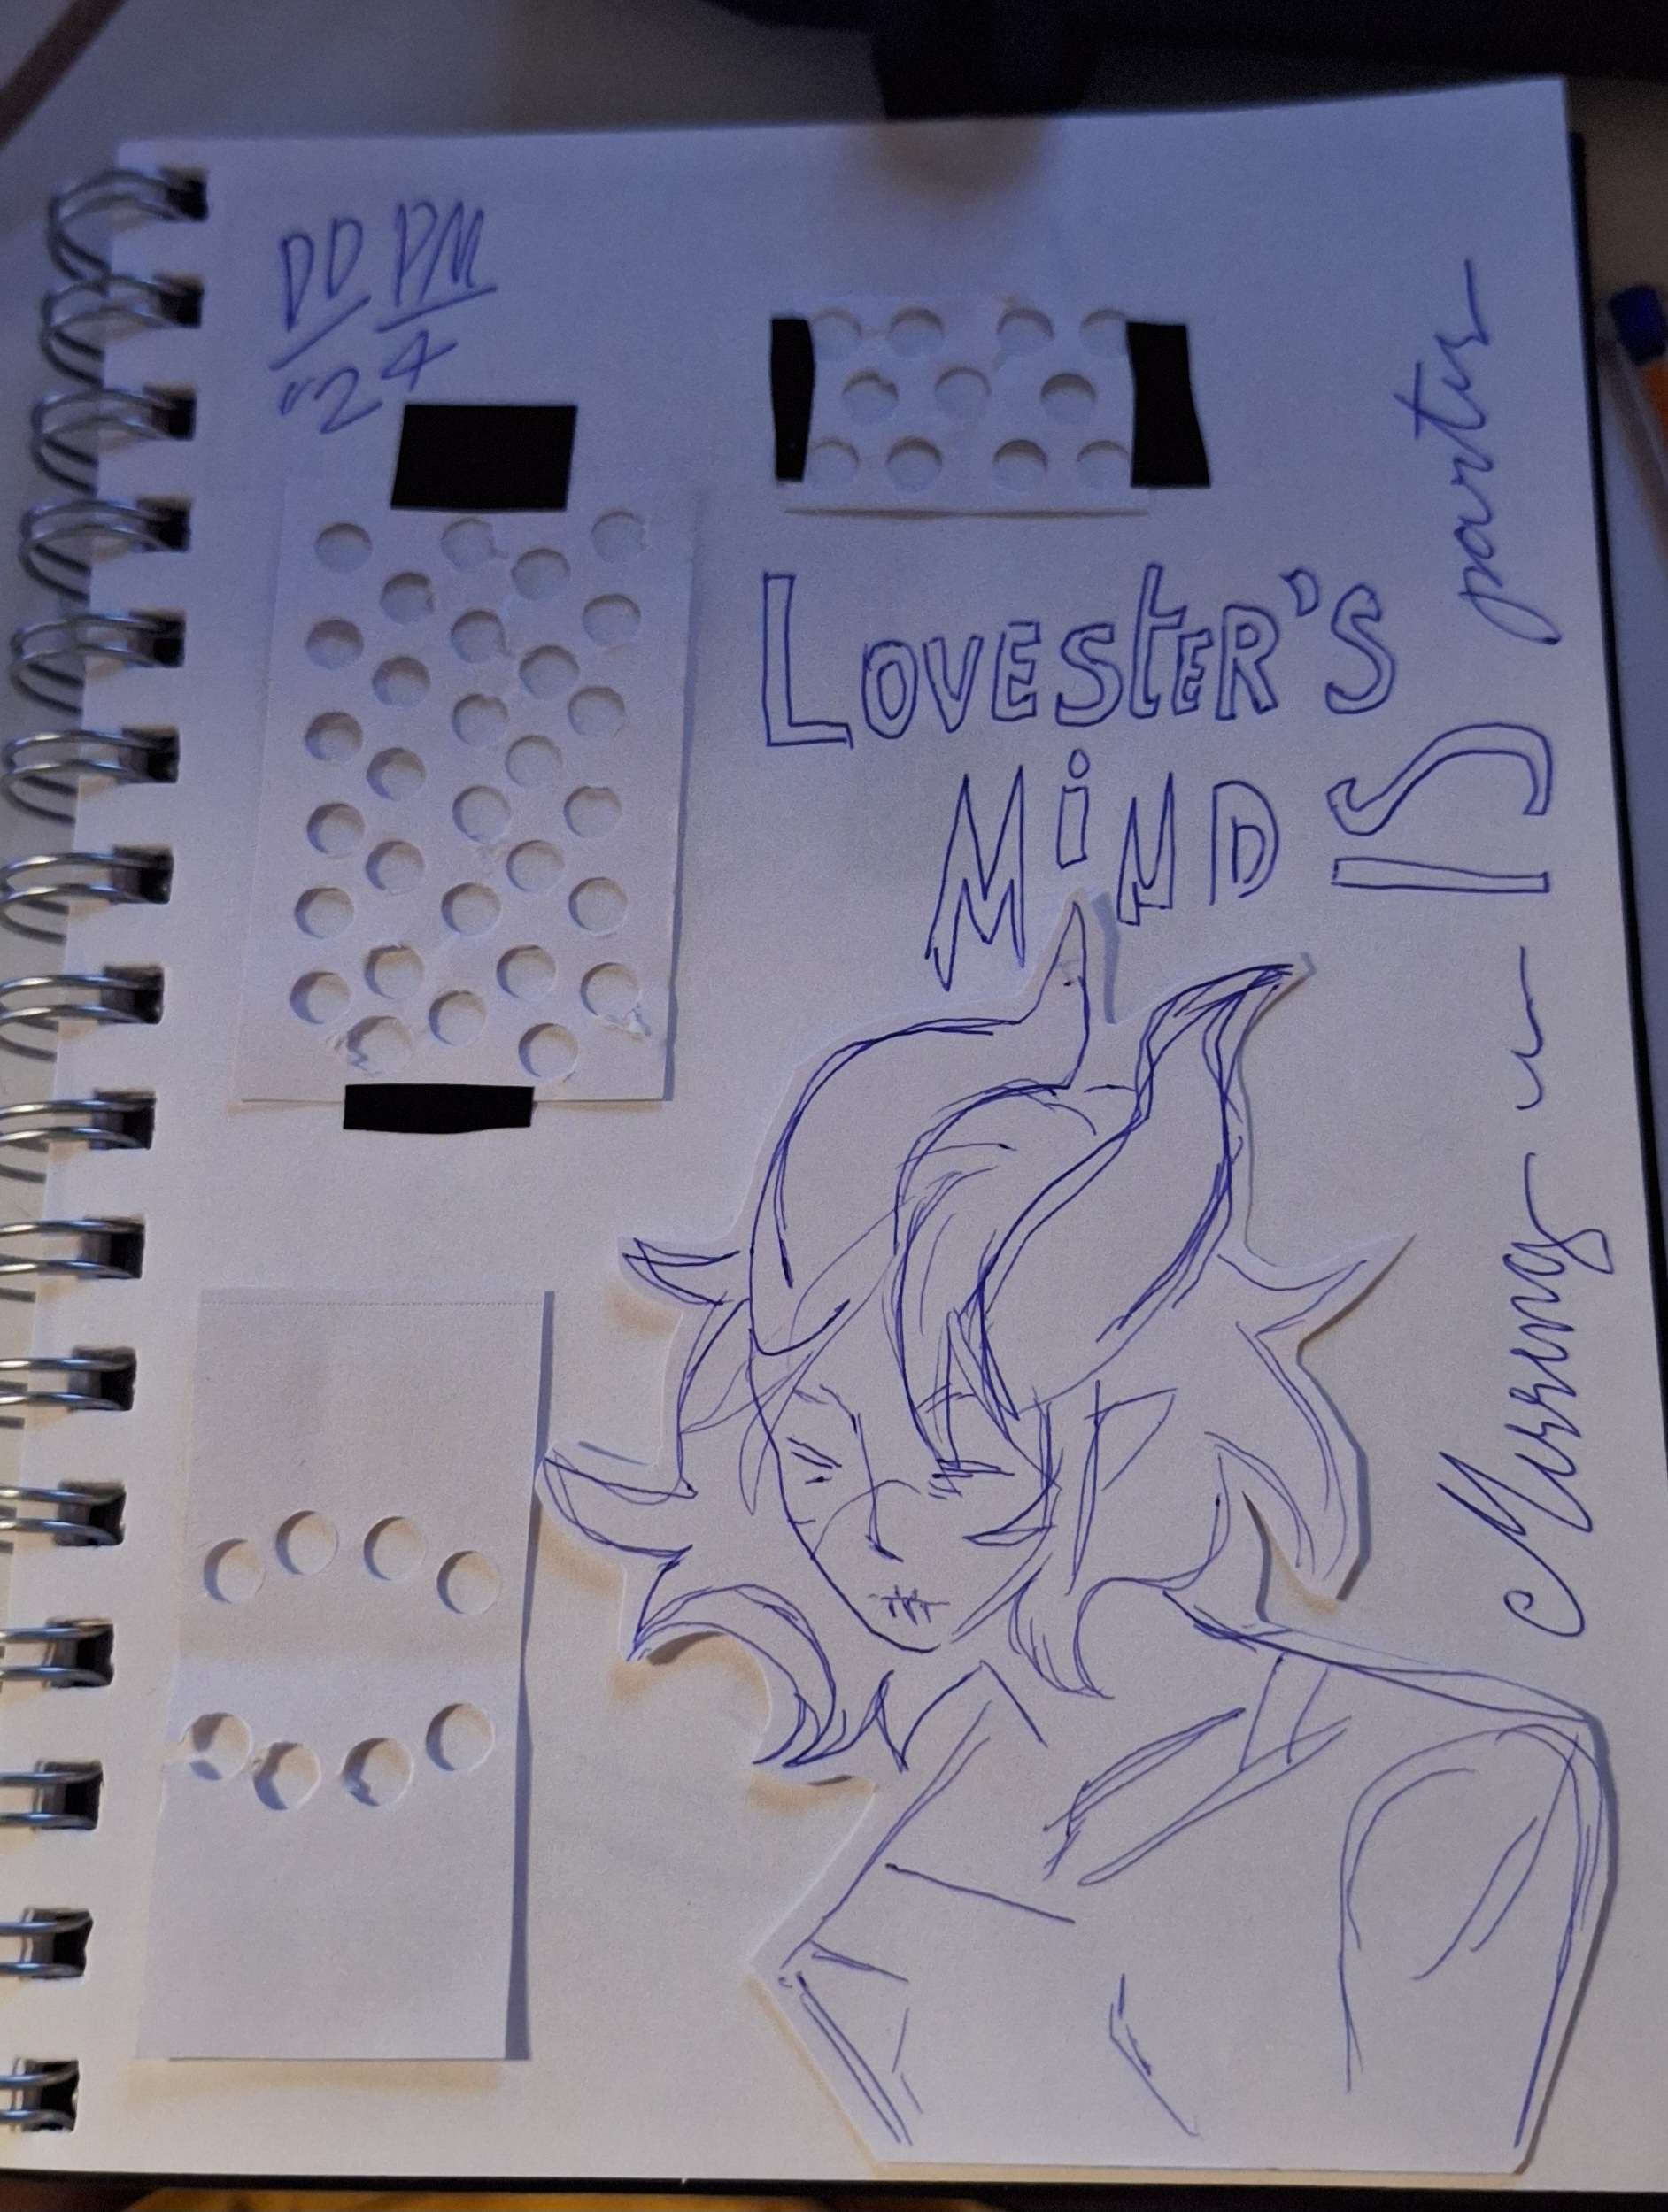 DD PM
"24
LOVESTER'S
MiND
IS
Missing
parts